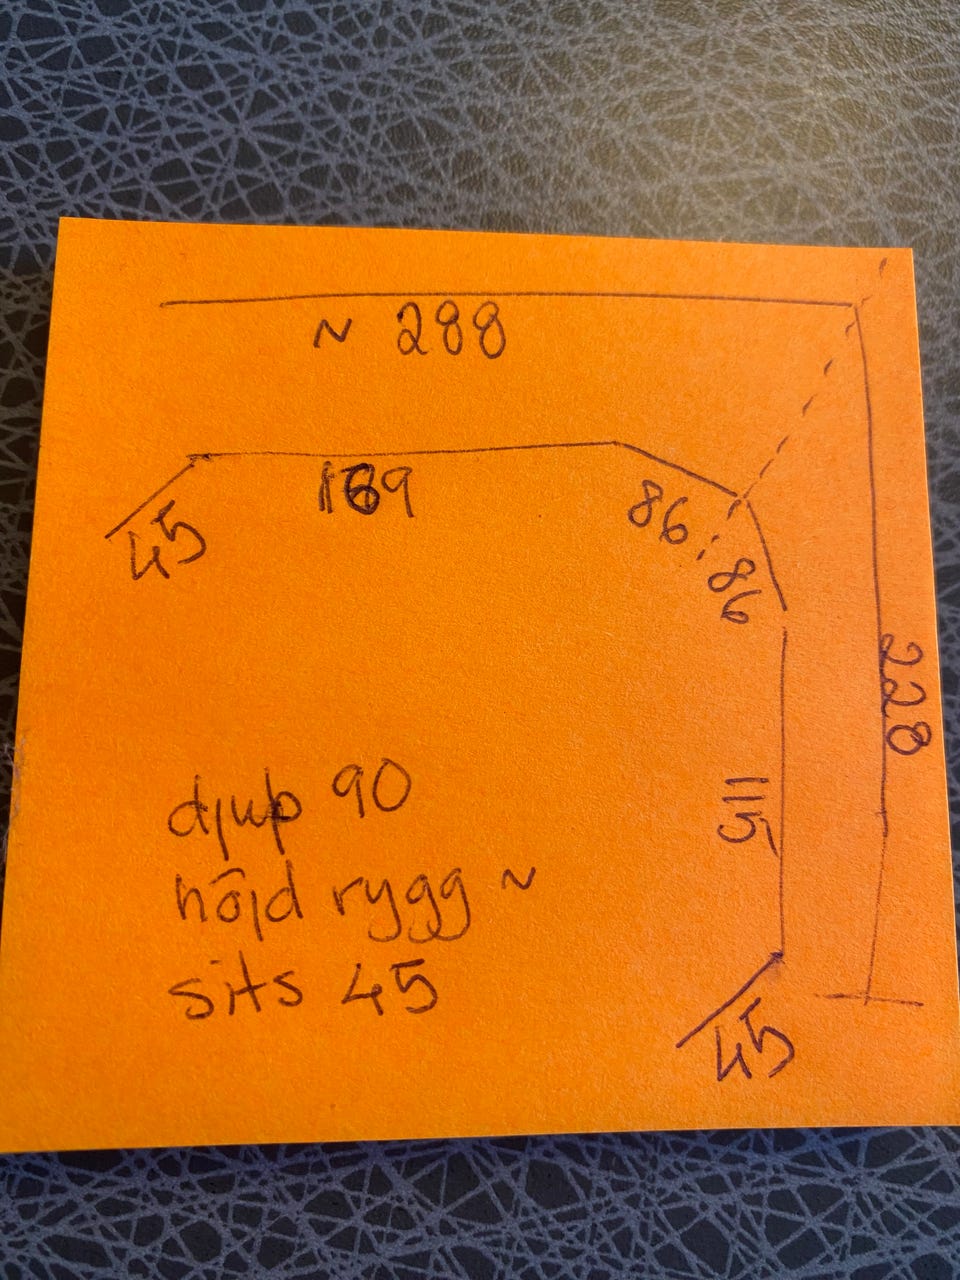 ~ 288
169
45
86
86
228
115
djup 90
höjd rygg ~
sits 45
45